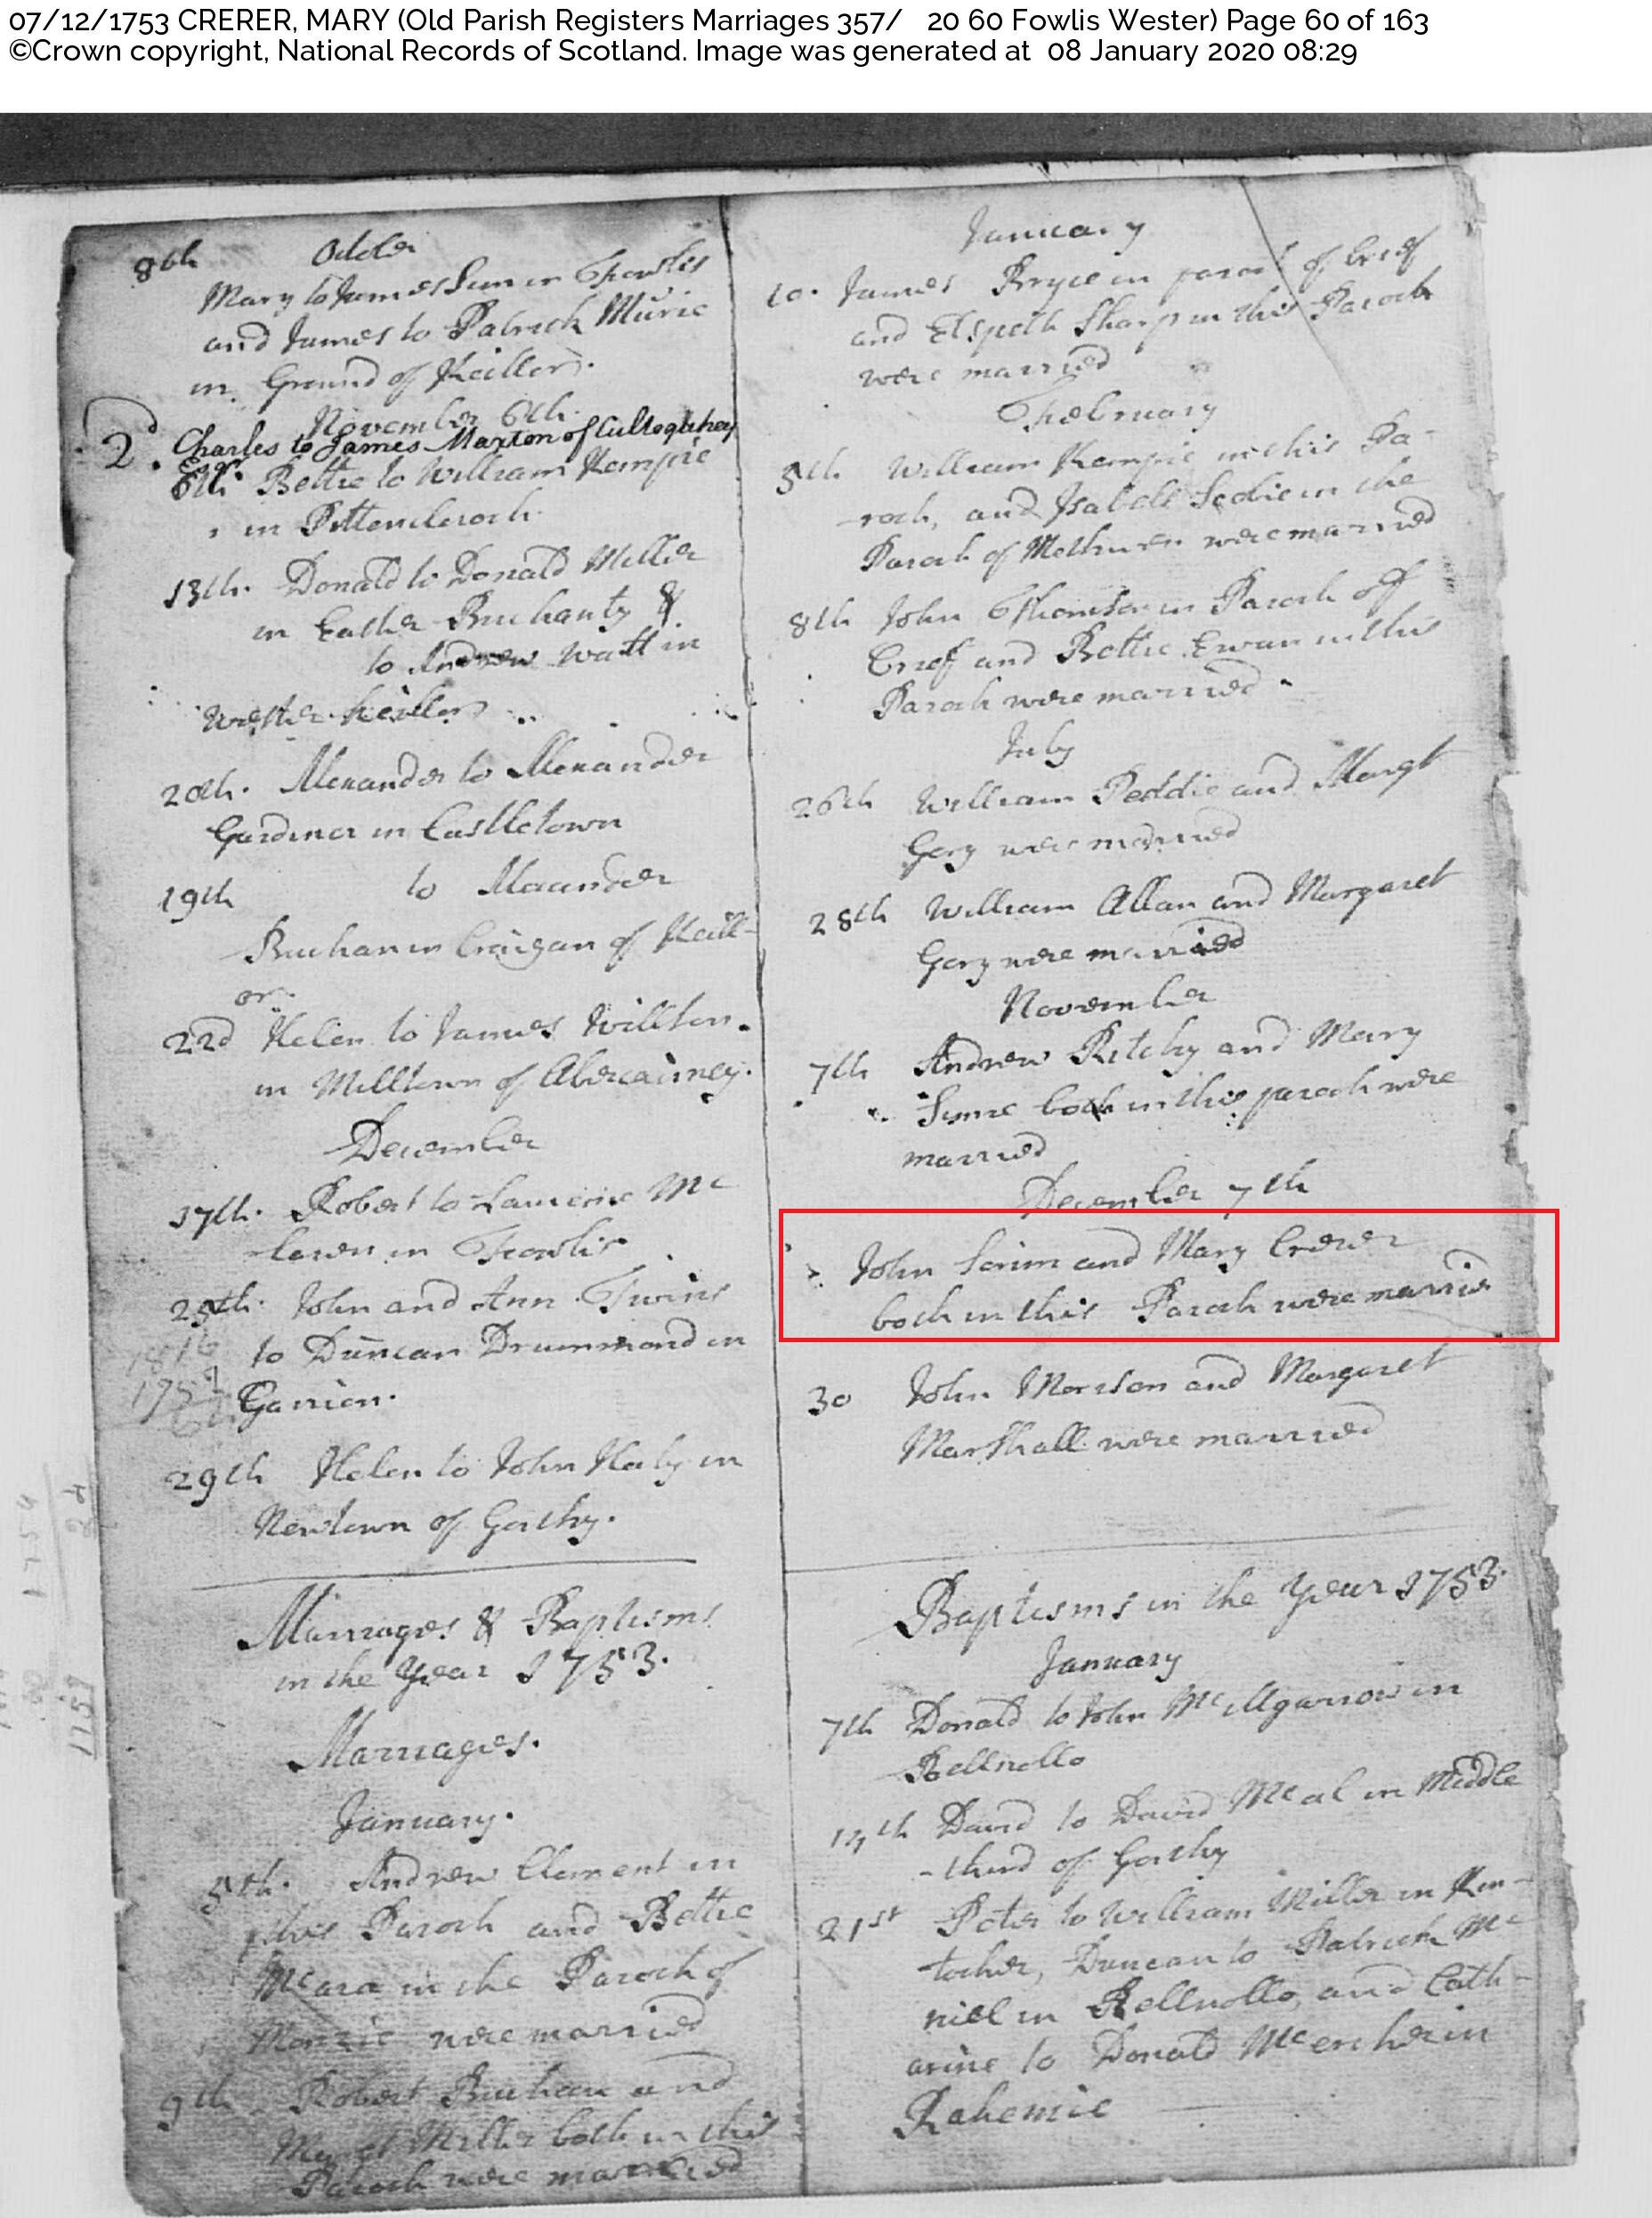 07/12/1753 CRERER, MARY (Old Parish Registers Marriages 357/ 20 60 Fowlis Wester) Page 60 of 163
©Crown copyright, National Records of Scotland. Image was generated at 08 January 2020 08:29
8th October
Mary to James Sim in Fowlis
and James to Patrick Murie
in Ground of Keillor.
November 6th.
2d. Charles to James Maxton of Cultoquhey
Esqr.
6th Bettie to William Kempie
in Pittencleroch
13th. Donald to Donald Miller
in Easter Buchanty &
to Andrew Watt in
Wester Keillor
20th. Alexander to Alexander
Gardiner in Castletown
19th to Alaander
Buchan in Craigan of Keill-
or.
22d Helen to James
in Milltown of Abercairney.
December
17th. Robert to Laurence Mc
laren in Fowlis
25th. John and Ann Twins
to Duncan Drummond in
29th Helen to John in
Newtown of Gorthy.
Marriages & Baptisms
in the Year 1753.
Marriages.
January.
5th. Andrew Clement in
this Paroch and Bettie
Mcara in the Paroch of
Monzie were married
9th Robert Buchan and
Margt Miller both in this
Paroch were married
January
10. James Bryce in paroch of Crief
and Elspeth Sharp in this Paroch
were married
February
5th William Kempie in this Pa-
roch, and Isabell in the
Paroch of Methven were married
8th John Thomson in Paroch off
Crief and Bettie Ewan in this
Paroch were married.
July
26th William Peddie and Margt
Gory were married
28th William Allan and Margaret
Gory were married
November
7th Andrew Ritchy and Mary
Syme both in this paroch were
married
December 7th
John Scrim and Mary Crerer
both in this Paroch were married
30 John Morison and Margaret
Marshall were married
Baptisms in the Year 1753.
January
7th Donald to John in
Bellnollo
14th David to David Mcal in Middle
-third of Gorthy
21st Peter to William Miller in Kin-
tocher, Duncan to Patrick Mc
niel in Bellnollo, and Cath-
arine to Donald Mcercher in
Rahemie